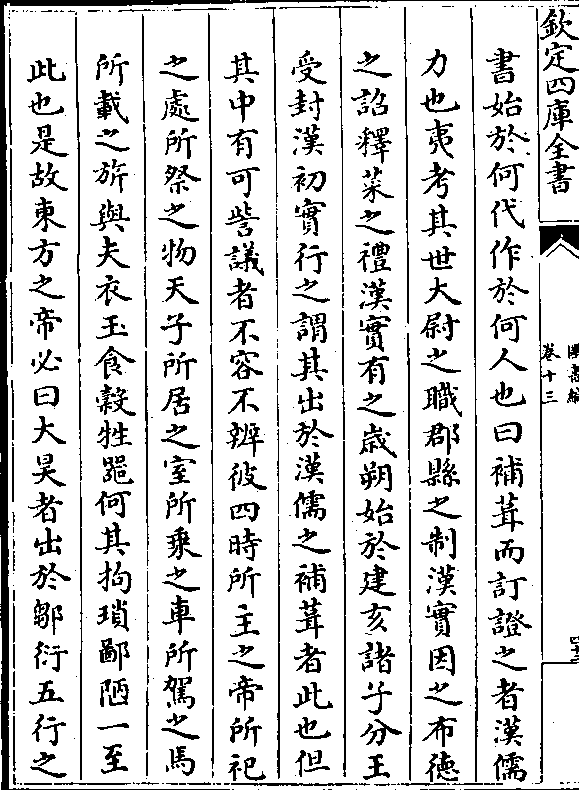 欽定四庫全書
卷十三
書始於何代作於何人也曰補葺而訂證之者漢儒
力也夷考其世大尉之職郡縣之制漢實因之布德
之詔釋菜之禮漢實有之歲朔始於建亥諸子分王
受封漢初實行之謂其出於漢儒之補葺者此也但
其中有可訾議者不容不辨彼四時所主之帝所祀
之處所祭之物天子所居之室所乗之車所駕之馬
所載之旂與夫衣玉食榖牲噐何其拘瑣鄙陋一至
此也是故東方之帝必曰大昊者出於鄒衍五行之